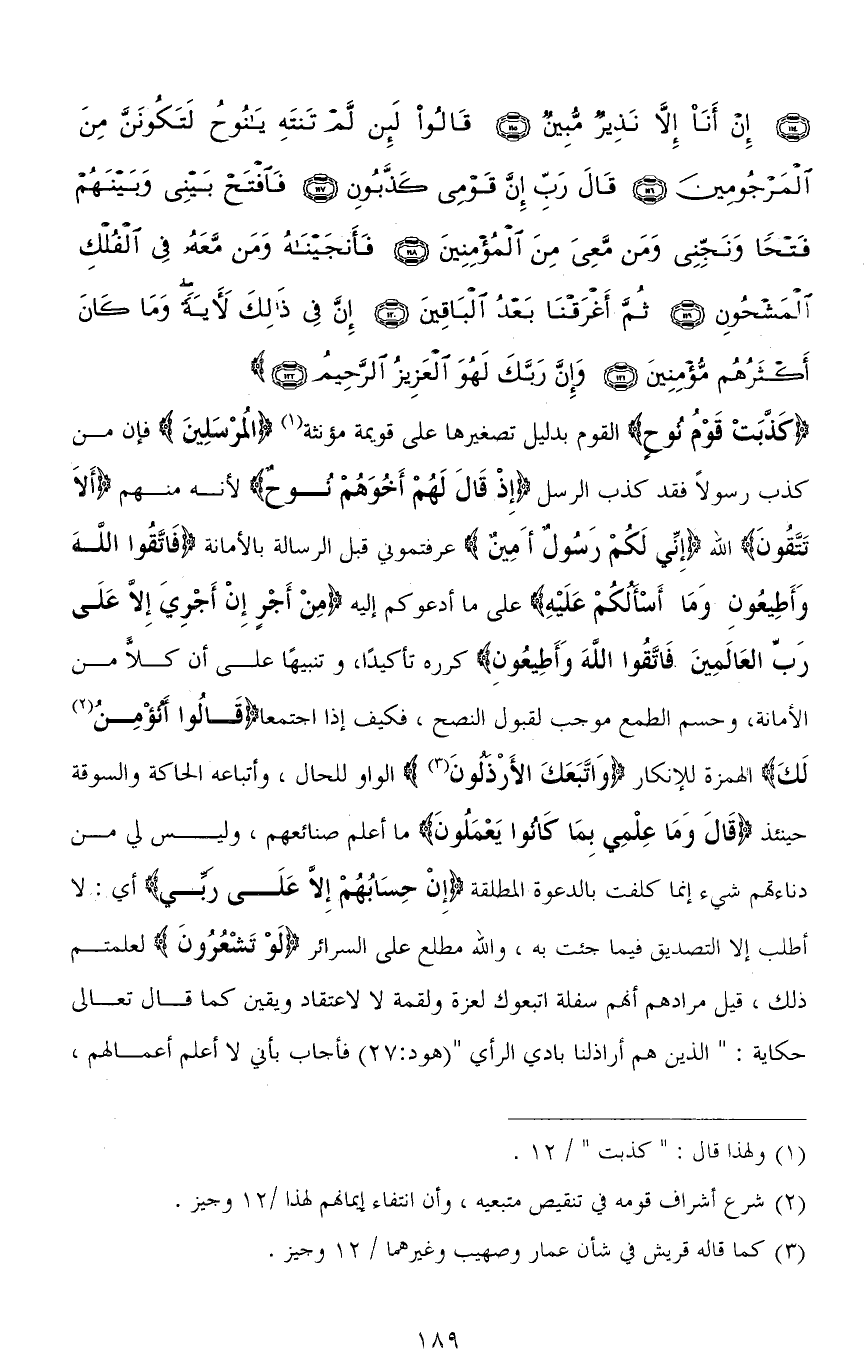 ﴿١١٤﴾ إِنْ أَنَا۠ إِلَّا نَذِيرٌ مُّبِينٌ ﴿١١٥﴾ قَالُوا۟ لَئِن لَّمْ تَنتَهِ يَـٰنُوحُ لَتَكُونَنَّ مِنَ
ٱلْمَرْجُومِينَ ﴿١١٦﴾ قَالَ رَبِّ إِنَّ قَوْمِى كَذَّبُونِ ﴿١١٧﴾ فَٱفْتَحْ بَيْنِى وَبَيْنَهُمْ
فَتْحًا وَنَجِّنِى وَمَن مَّعِىَ مِنَ ٱلْمُؤْمِنِينَ ﴿١١٨﴾ فَأَنجَيْنَـٰهُ وَمَن مَّعَهُۥ فِى ٱلْفُلْكِ
ٱلْمَشْحُونِ ﴿١١٩﴾ ثُمَّ أَغْرَقْنَا بَعْدُ ٱلْبَاقِينَ ﴿١٢٠﴾ إِنَّ فِى ذَٰلِكَ لَـَٔايَةً ۖ وَمَا كَانَ
أَكْثَرُهُم مُّؤْمِنِينَ ﴿١٢١﴾ وَإِنَّ رَبَّكَ لَهُوَ ٱلْعَزِيزُ ٱلرَّحِيمُ ﴿١٢٢﴾ ﴾
﴿كَذَّبَتْ قَوْمُ نُوحٍ﴾ القوم بدليل تصغيرها على قويمة مؤنثة(١) ﴿الْمُرْسَلِينَ ﴾ فإن من
كذب رسولاً فقد كذب الرسل ﴿إِذْ قَالَ لَهُمْ أَخُوَهُمْ نُوحٌ﴾ لأنه منهم ﴿أَلاَ
تَتَّقُونَ﴾ الله ﴿إِنِّي لَكُمْ رَسُولٌ أَمِينٌ ﴾ عرفتموني قبل الرسالة بالأمانة ﴿فَاتَّقُوا اللَّهَ
وَأَطِيعُونِ وَمَا أَسْأَلُكُمْ عَلَيْهِ﴾ على ما أدعوكم إليه ﴿مِنْ أَجْرٍ إِنْ أَجْرِيَ إِلاَّ عَلَى
رَبِّ العَالَمِينَ فَاتَّقُوا اللَّهَ وَأَطِيعُونِ﴾ كرره تأكيدًا، و تنبيهًا على أن كلاًّ من
الأمانة، وحسم الطمع موجب لقبول النصح ، فكيف إذا اجتمعا﴿قَالُوا أَنُؤْمِنُ(٢)
لَكَ﴾ الهمزة للإنكار ﴿وَاتَّبَعَكَ الأَرْذَلُونَ(٣) ﴾ الواو للحال ، وأتباعه الحاكة والسوقة
حينئذ ﴿قَالَ وَمَا عِلْمِي بِمَا كَانُوا يَعْمَلُونَ﴾ ما أعلم صنائعهم ، وليس لي من
دناءتهم شيء إنما كلفت بالدعوة المطلقة ﴿إِنْ حِسَابُهُمْ إِلاَّ عَلَى رَبِّي﴾ أي : لا
أطلب إلا التصديق فيما جئت به ، والله مطلع على السرائر ﴿لَوْ تَشْعُرُونَ ﴾ لعلمتم
ذلك ، قيل مرادهم أنهم سفلة اتبعوك لعزة ولقمة لا لاعتقاد ويقين كما قال تعالى
حكاية : " الذين هم أراذلنا بادي الرأي "(هود:٢٧) فأجاب بأني لا أعلم أعمالهم ،
(١) ولهذا قال : " كذبت " / ١٢ .
(٢) شرع أشراف قومه في تنقيص متبعيه ، وأن انتفاء إيمانهم لهذا /١٢ وجيز .
(٣) كما قاله قريش في شأن عمار وصهيب وغيرهما / ١٢ وجيز .
١٨٩